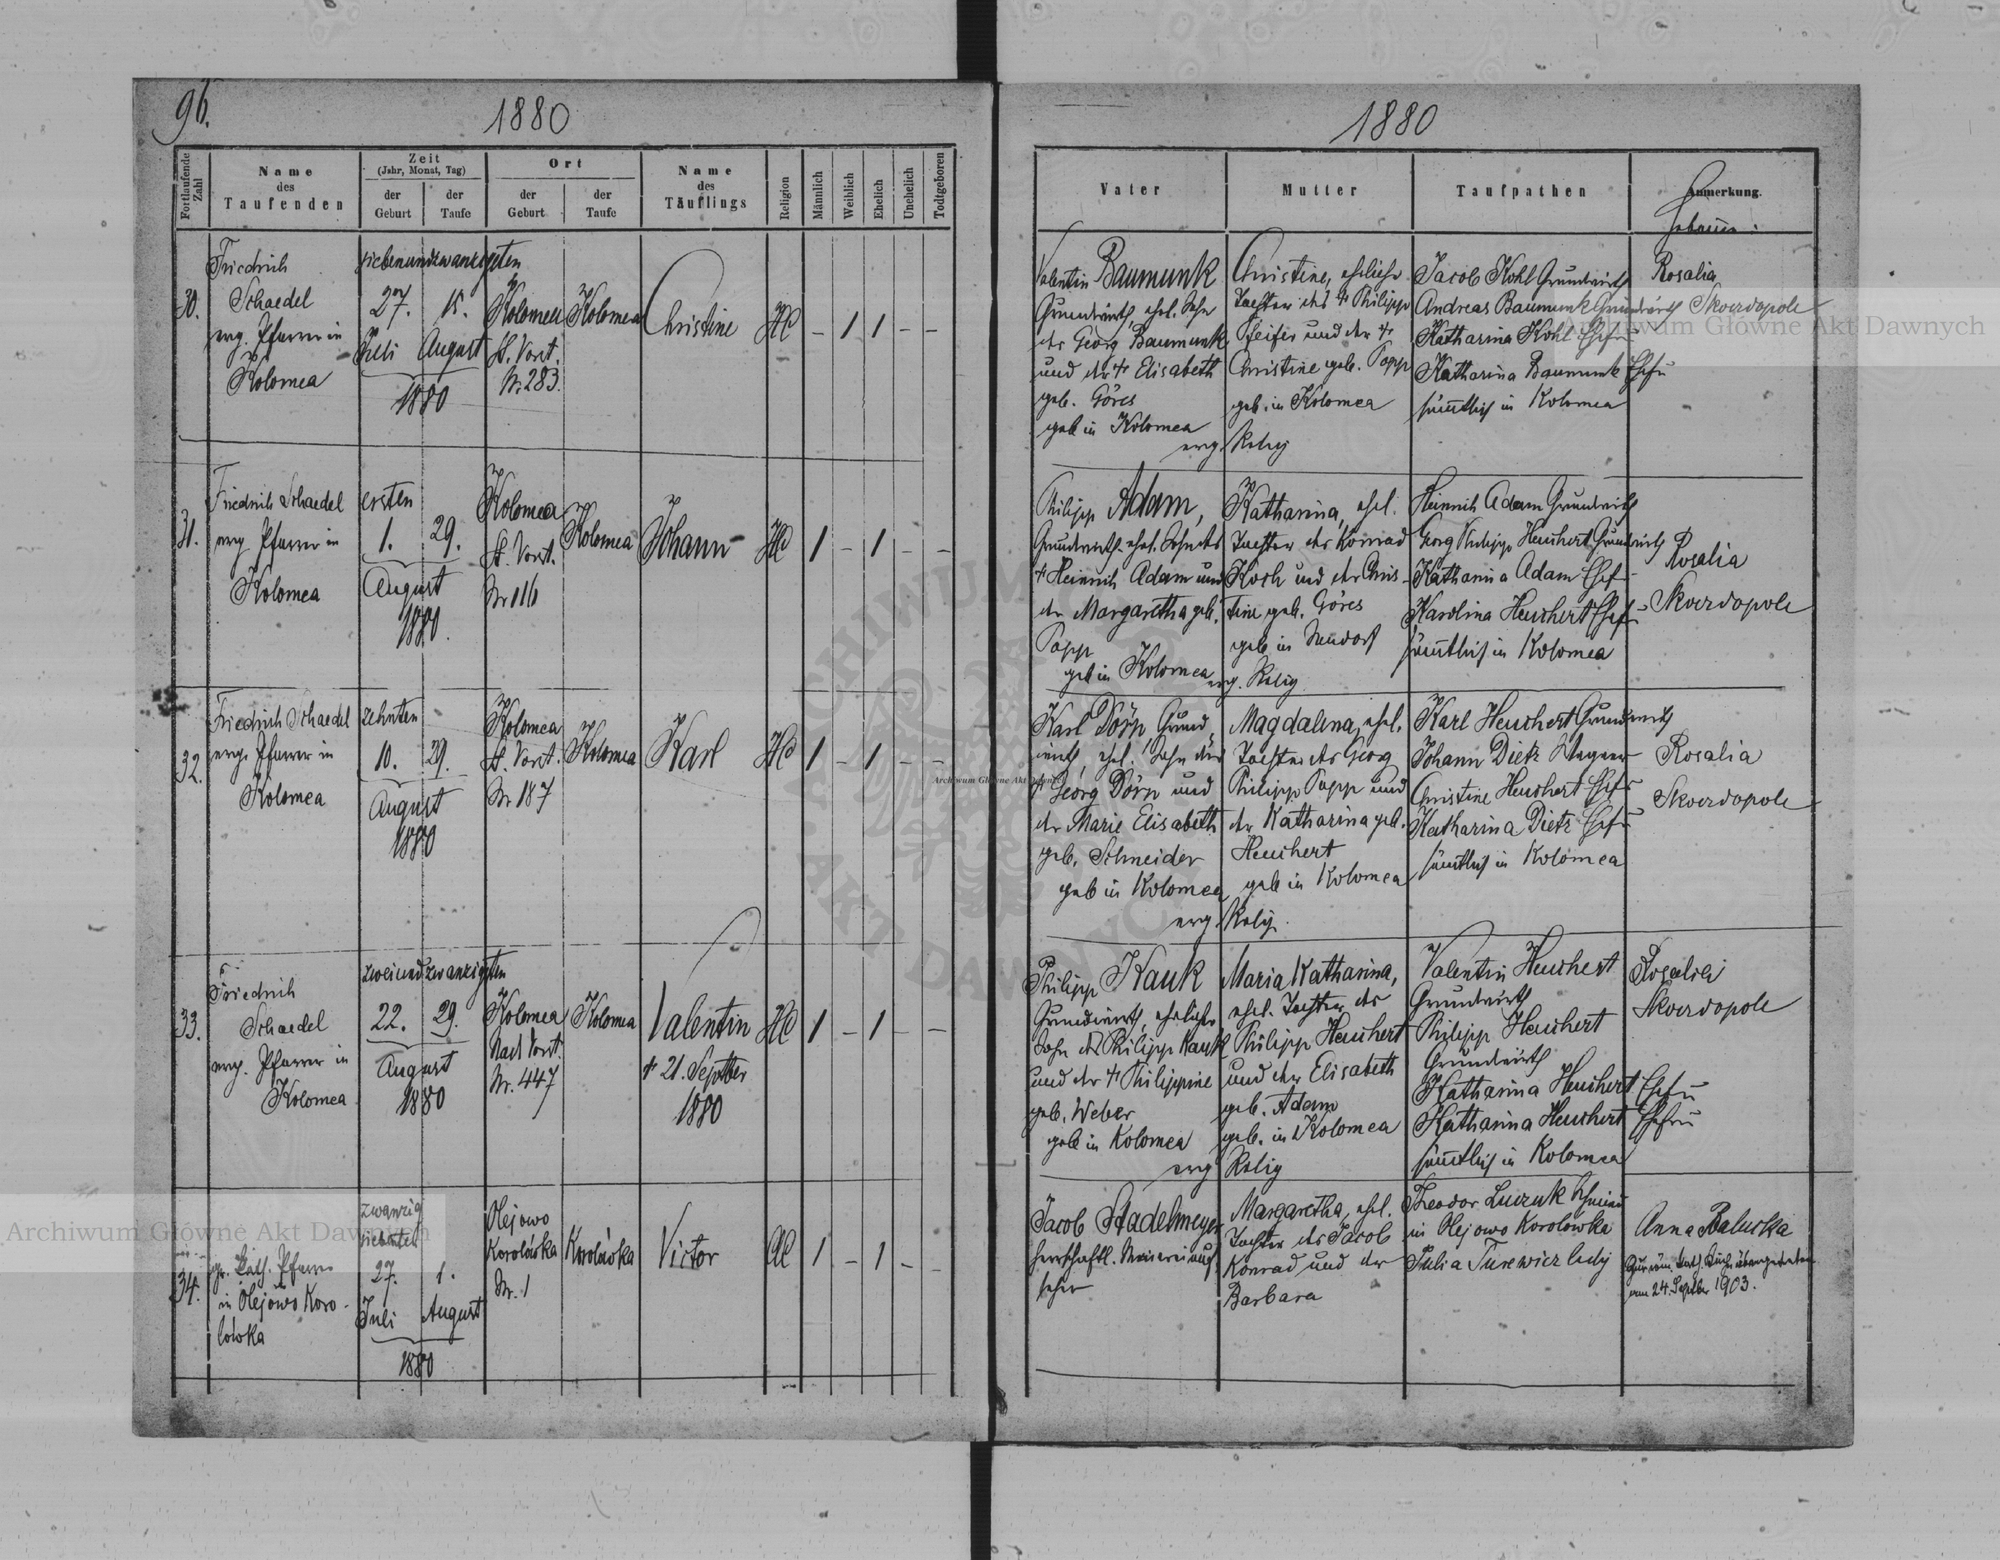 96.
1880
1880
Fortlaufende Zahl
Name des Taufenden
Zeit (Jahr, Monat, Tag)
der Geburt
der Taufe
Ort
der Geburt
der Taufe
Name des Täuflings
Religion
Männlich
Weiblich
Ehelich
Unehelich
Todtgeboren
Vater
Mutter
Taufpathen
Anmerkung.
Hebamme:
30.
Friedrich
Schaedel
evg. Pfarrer in
Kolomea
siebenundzwanzigsten
27. 15.
Juli August
1880
Kolomea
St. Vorst.
Nr. 283.
Kolomea
Christine
HC
– 1 1 – –
Valentin Baumunk
Grundwirth, ehel. Sohn
des Georg Baumunk
und der † Elisabeth
geb. Göres
geb in Kolomea
evg. Relig
Christine, eheliche
Tochter des † Philipp
Pfeifer und der †
Christine geb. Popp
geb. in Kolomea
Jacob Kohl Grundwirth
Andreas Baumunk Grundwirth
Katharina Kohl Ehefr
Katharina Baumunk Ehefr
sämtlich in Kolomea
Rosalia
Skowdopole
31.
Friedrich Schaedel
evg Pfarrer in
Kolomea
ersten
1. 29.
August
1880.
Kolomea
St. Vorst.
Nr 116
Kolomea
Johann
HC
1 – 1 – –
Philipp Adam,
Grundwirth. ehel. Sohn des
† Heinrich Adam und
der Margaretha geb.
Popp
geb in Kolomea
evg. Relig
Katharina, ehel.
Tochter des Konrad
Koch und der Chris-
tine geb. Göres
geb in Neudorf
Heinrich Adam Grundwirth
Georg Philipp Heuchert Grundwirth
Katharina Adam Ehef
Karolina Heuchert Ehef
sämtlich in Kolomea
Rosalia
Skowdopole
32.
Friedrich Schaedel
evg. Pfarrer in
Kolomea
zehnten
10. 29.
August
1880
Kolomea
St. Vorst.
Nr 187
Kolomea
Karl
HC
1 – 1 – –
Karl Dörn Grund
wirth, ehel. Sohn des
† Georg Dörn und
der Marie Elisabeth
geb. Schneider
geb in Kolomea
evg. Relig.
Magdalena, ehel.
Tochter des Georg
Philipp Popp und
der Katharina geb.
Heuchert
geb in Kolomea
Karl Heuchert Grundwirth
Johann Dietz Wagner
Christine Heuchert Ehefr
Katharina Dietz Ehefr
sämtlich in Kolomea
Rosalia
Skowdopole
33.
Friedrich
Schaedel
evg. Pfarrer in
Kolomea
zweiundzwanzigsten
22. 29.
August
1880
Kolomea
Nad Vorst.
Nr. 447
Kolomea
Valentin
† 21. Septber
1880
HC
1 – 1 – –
Philipp Kauk
Grundwirth, ehelicher
Sohn des Philipp Kauk
und der † Philippine
geb. Weber
geb in Kolomea
evg Relig
Maria Katharina,
ehel. Tochter des
Philipp Heuchert
und der Elisabeth
geb. Adam
geb. in Kolomea
Valentin Heuchert
Grundwirth
Philipp Heuchert
Grundwirth
Katharina Heuchert Ehefr
Katharina Heuchert Ehefr
sämtlich in Kolomea
Rosalia
Skowdopole
34.
gr. kath. Pfarrer
in Olejowo Koro-
lówka
zwanzig
siebenten
27. 1.
Juli August
1880
Olejowo
Korolówka
Nr. 1
Korolówka
Victor
AC
1 – 1 – –
Jacob Stadelmeyer
herrschaftl. Meiereiauf
seher
Margaretha, ehel.
Tochter des Jacob
Konrad und der
Barbara
Theodor Luczuk Schmied
in Olejowo Korolówka
Julia Turewicz ledig
Anna Baluska
Zur röm. kath. Kirche übergetreten
am 24. Septber 1903.
Archiwum Główne Akt Dawnych
Archiwum Główne Akt Dawnych
Archiwum Główne Akt Dawnych
ARCHIWUM
AKT DAWNYCH